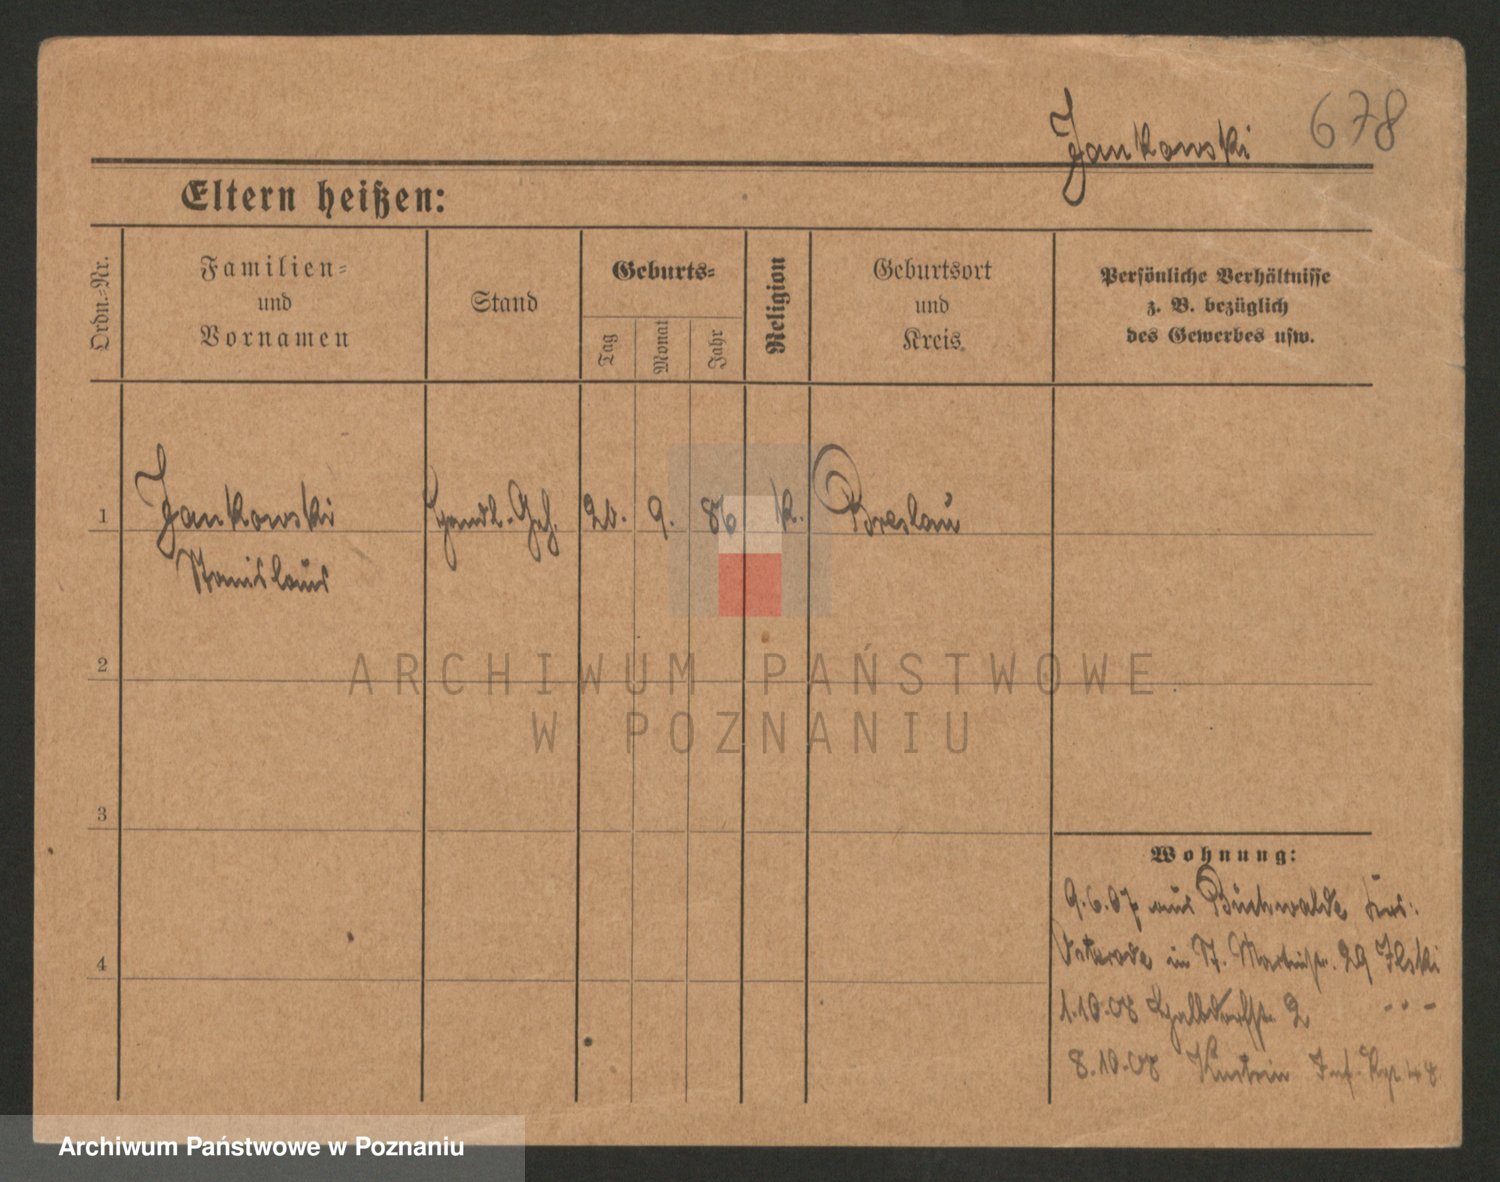 Jankowski 678
Eltern heißen:
Ordn.=Nr.
Familien=
und
Vornamen
Stand
Geburts=
Tag
Monat
Jahr
Religion
Geburtsort
und
Kreis.
Persönliche Verhältnisse
z. B. bezüglich
des Gewerbes usw.
1 Jankowski Handl. Geh. 20. 9. 86 k. Breslau
Stanislaus
2
3
4
Wohnung:
9.6.07 aus Buchwalde Krs:
Osterode in St. Martinstr. 29 Ilski
1.10.08 Halbdorfstr. 2 " " "
8.10.08 Küstrin Inf. Rgt. 48
ARCHIWUM PAŃSTWOWE
W POZNANIU
Archiwum Państwowe w Poznaniu